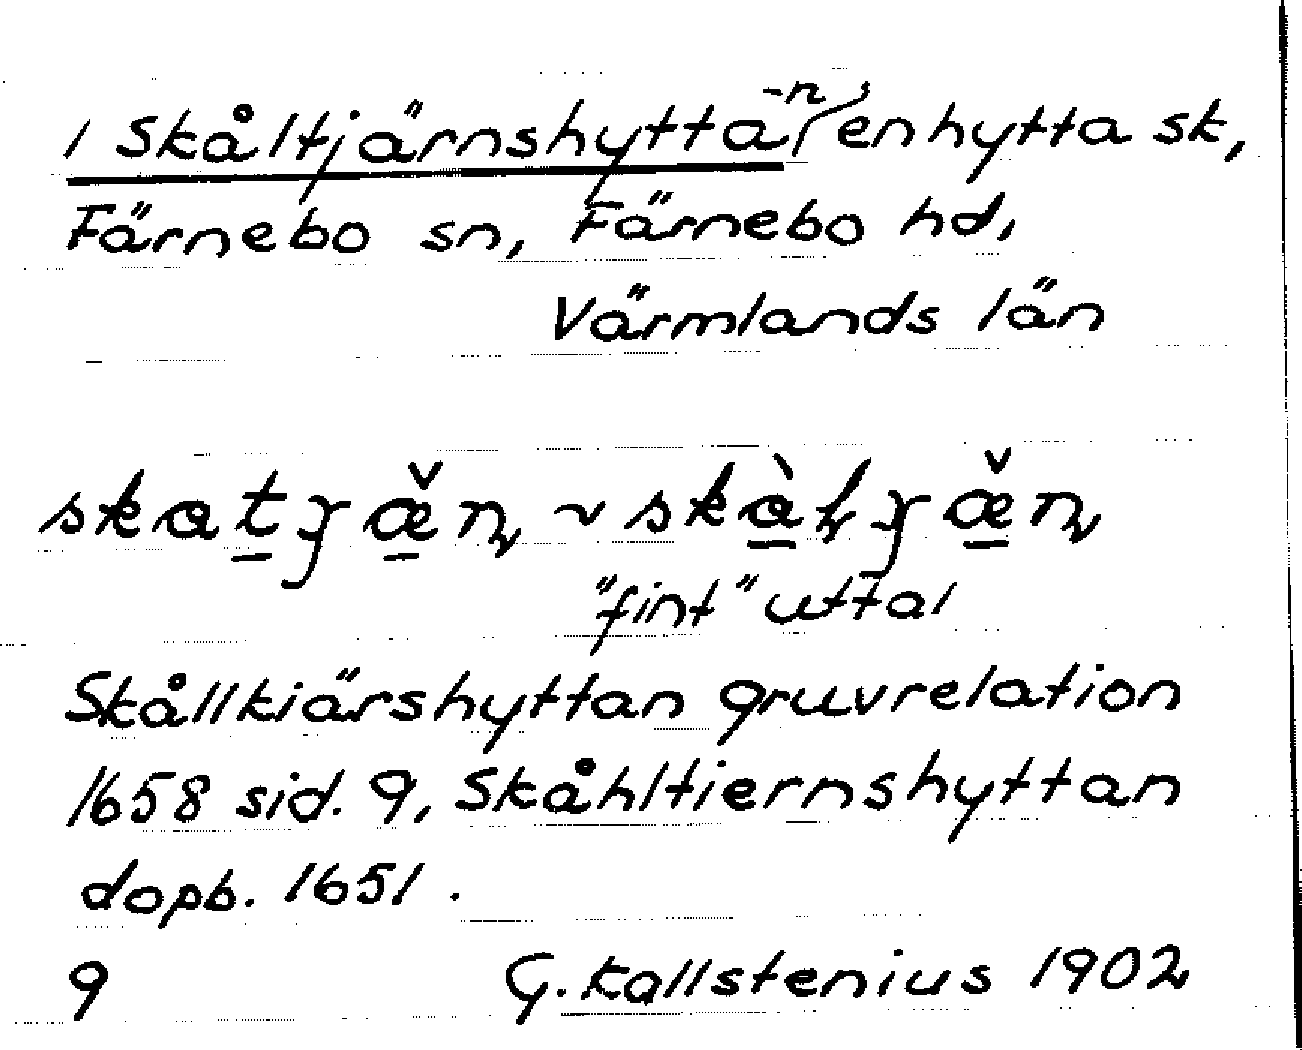 1 Skåltjärnshytta -n, enhytta sk,
Färnebo sn, Färnebo hd,
Värmlands län
~
"fint" uttal
Skållkiärshyttan gruvrelation
1658 sid. 9, Skåhltiernshyttan
dopb. 1651.
9 G. Kallstenius 1902